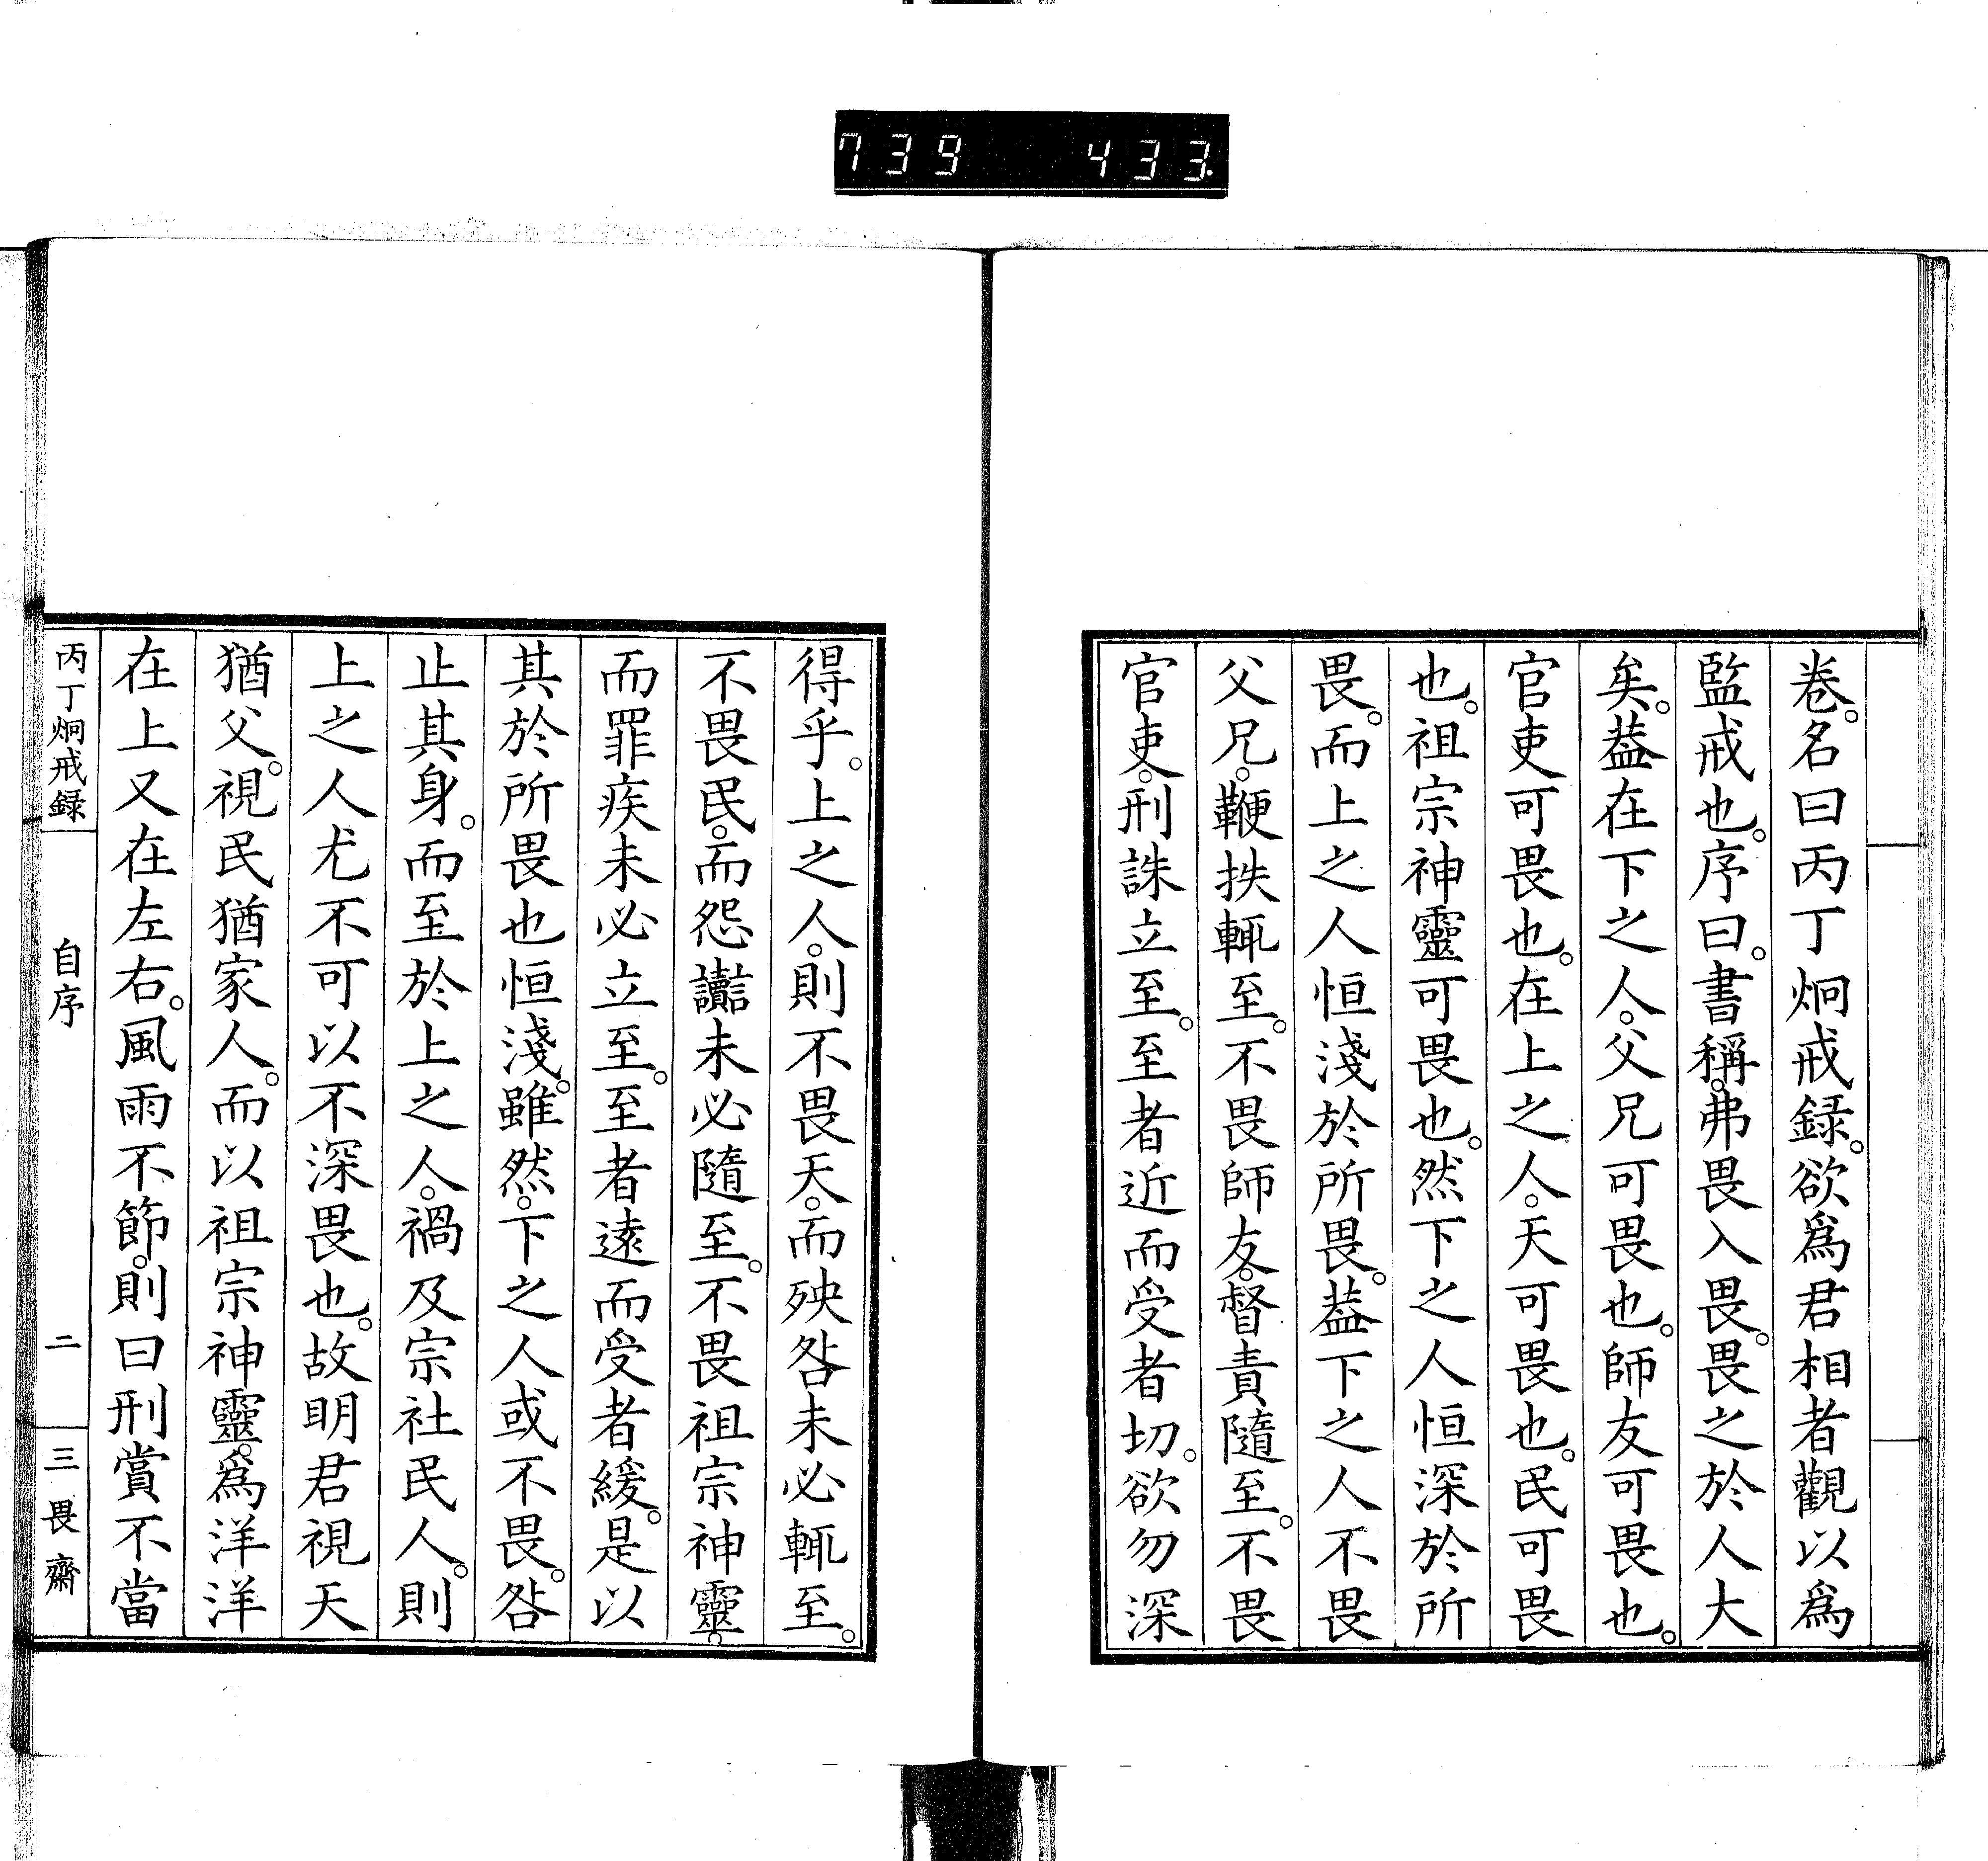 739 433.
卷。名曰丙丁炯戒録。欲爲君相者觀以爲
監戒也。序曰。書稱。弗畏入畏。畏之於人大
矣。葢在下之人。父兄可畏也。師友可畏也。
官吏可畏也。在上之人。天可畏也。民可畏
也。祖宗神靈可畏也。然下之人恒深於所
畏。而上之人恒淺於所畏。葢下之人不畏
父兄。鞭抶輒至。不畏師友。督責隨至。不畏
官吏。刑誅立至。至者近而受者切。欲勿深
得乎。上之人。則不畏天。而殃咎未必輒至。
不畏民。而怨讟未必隨至。不畏祖宗神靈。
而罪疾未必立至。至者遠而受者緩。是以
其於所畏也恒淺。雖然。下之人或不畏。咎
止其身。而至於上之人。禍及宗社民人。則
上之人尤不可以不深畏也。故明君視天
猶父。視民猶家人。而以祖宗神靈。爲洋洋
在上又在左右。風雨不節。則曰刑賞不當
丙丁炯戒録 自序 二 三畏齋